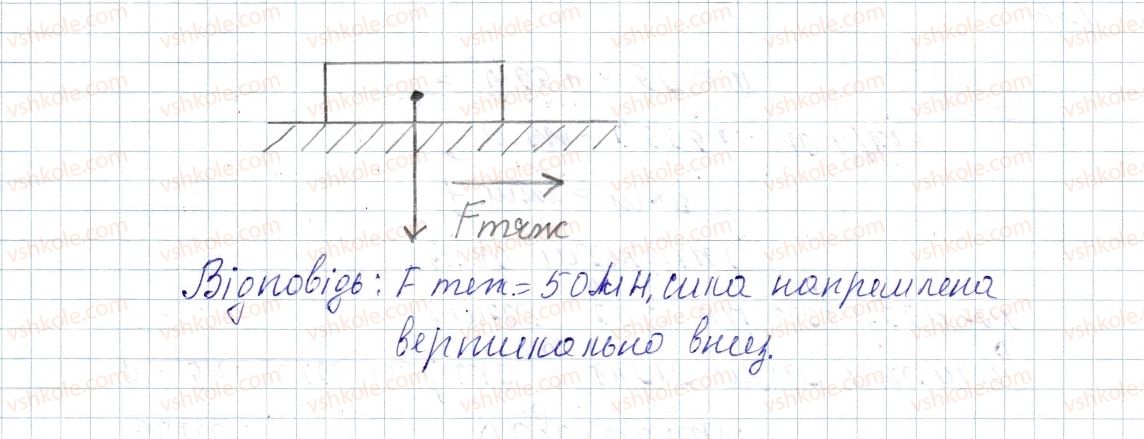 Fтяж
Відповідь: Fтяж = 50 мН, сила напрямлена
вертикально вниз.
vshkole.com